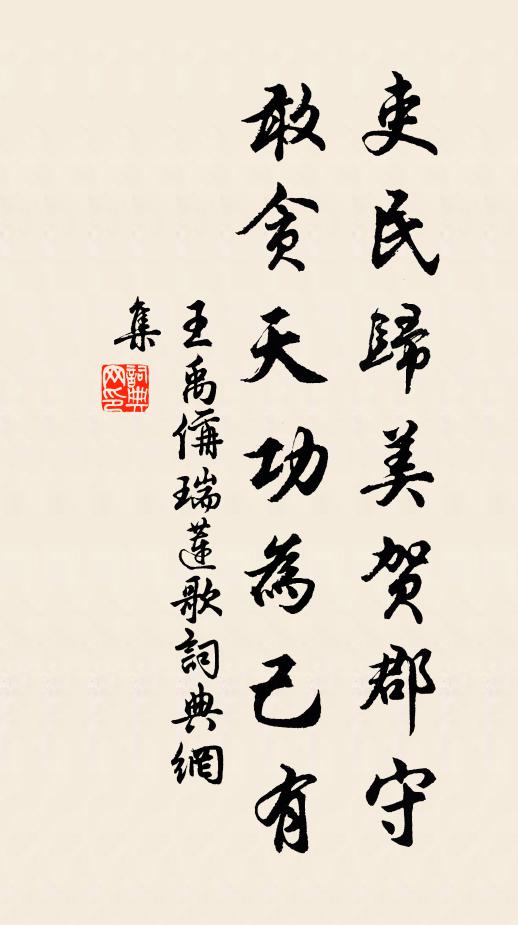 吏民歸美賀郡守
敢貪天功為己有
王禹偁瑞蓮歌詞典網
集
詞典
网印